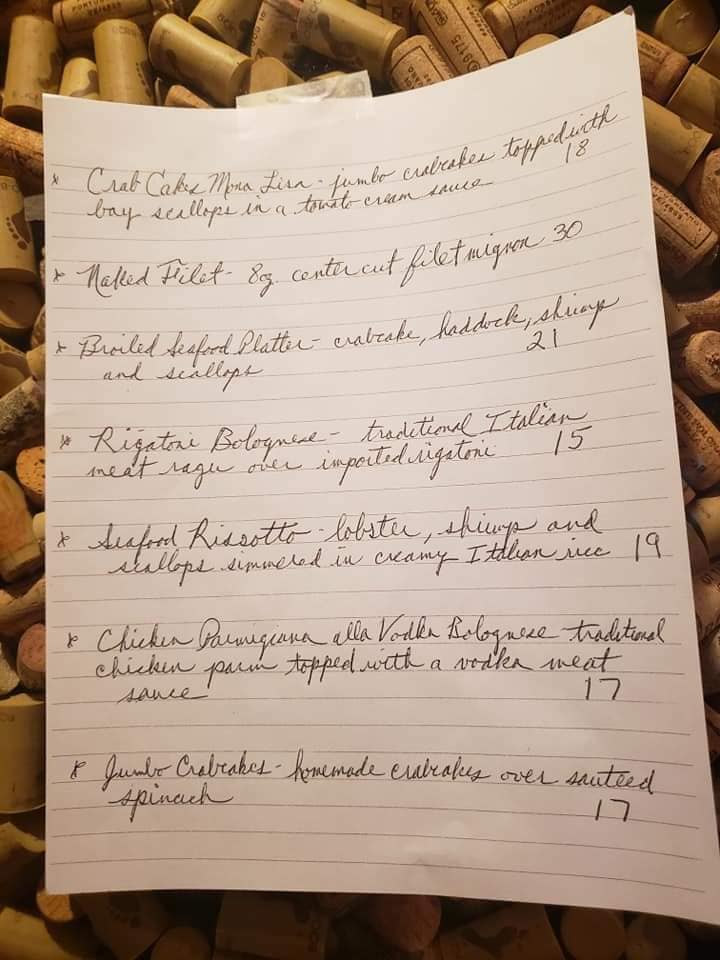 * Crab Cakes Mona Lisa - jumbo crabcakes topped with
bay scallops in a tomato cream sauce 18
* Naked Filet - 8oz. center cut filet mignon 30
* Broiled Seafood Platter - crabcake, haddock, shrimp
and scallops 21
* Rigatoni Bolognese - traditional Italian
meat ragu over imported rigatoni 15
* Seafood Rissotto - lobster, shrimp and
scallops simmered in creamy Italian rice 19
* Chicken Parmigiana alla Vodka Bolognese traditional
chicken parm topped with a vodka meat
sauce 17
* Jumbo Crabcakes - homemade crabcakes over sauteed
spinach 17